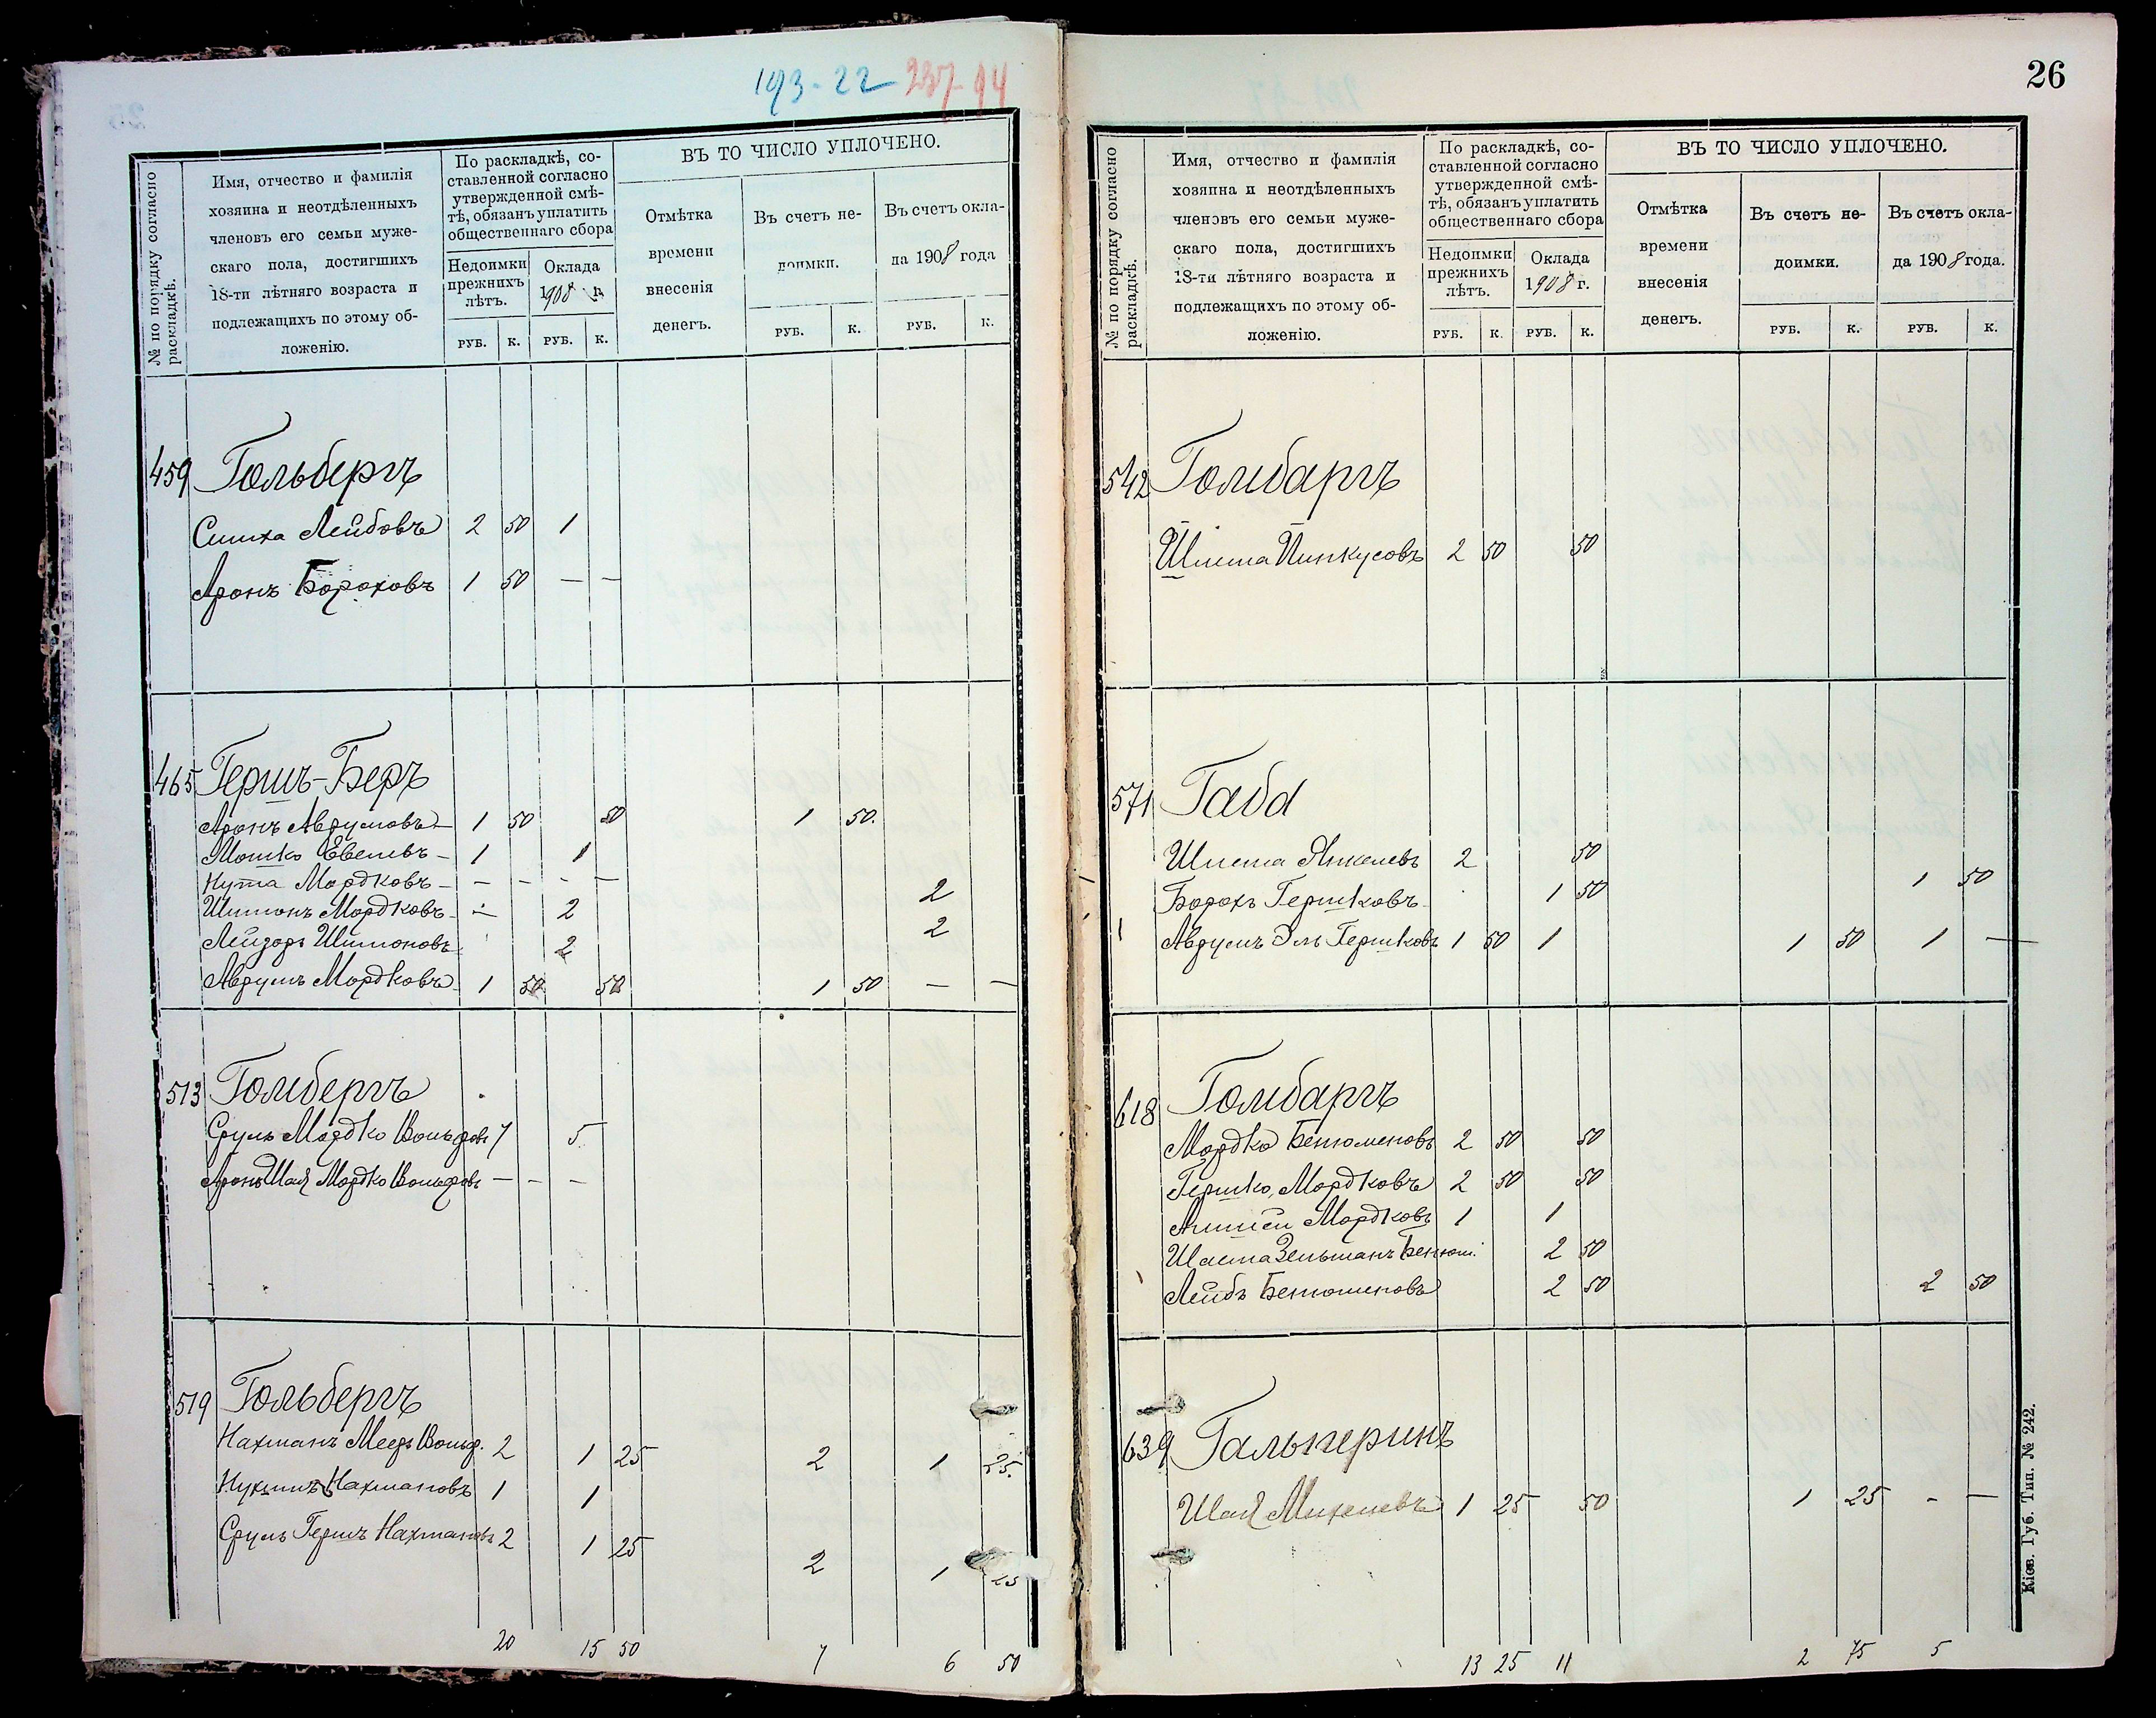 193-22 237-94
№ по порядку согласно раскладкѣ.
Имя, отчество и фамилія
хозяина и неотдѣленныхъ
членовъ его семьи муже-
скаго пола, достигшихъ
18-ти лѣтняго возраста и
подлежащихъ по этому об-
ложенію.
По раскладкѣ, со-
ставленной согласно
утвержденной смѣ-
тѣ, обязанъ уплатить
общественнаго сбора
Недоимки
прежнихъ
лѣтъ.
Оклада
1908 г.
РУБ. К. РУБ. К.
ВЪ ТО ЧИСЛО УПЛОЧЕНО.
Отмѣтка
времени
внесенія
денегъ.
Въ счетъ не-
доимки.
РУБ. К.
Въ счетъ окла-
да 1908 года
РУБ. К.
459 Гольбергъ
Симха Лейбовъ 2 50 1
Аронъ Бороховъ 1 50 — —
465 Гершъ-Беръ
Аронъ Аврумовъ — 1 50 50 1 50.
Мошко Евелевъ — 1 1
Нута Мордковъ — — — - —
Шимонъ Мордковъ — 2 2
Лейзоръ Шимоновъ 2 2
Аврумъ Мордковъ 1 50 50 1 50 — —
513 Голмбергъ
Сруль Мордко Вольфовъ 7 5
Аронъ Шая Мордко Вольфовъ — — —
519 Гольбергъ
Нахманъ Мееръ Вольф. 2 1 25 2 1 25.
Нухимъ Нахмановъ 1 1
Сруль Гершъ Нахмановъ 2 1 25 2 1 25
20 15 50 7 6 50
26
№ по порядку согласно раскладкѣ.
Имя, отчество и фамилія
хозяина и неотдѣленныхъ
членовъ его семьи муже-
скаго пола, достигшихъ
18-ти лѣтняго возраста и
подлежащихъ по этому об-
ложенію.
По раскладкѣ, со-
ставленной согласно
утвержденной смѣ-
тѣ, обязанъ уплатить
общественнаго сбора
Недоимки
прежнихъ
лѣтъ.
Оклада
1908 г.
РУБ. К. РУБ. К.
ВЪ ТО ЧИСЛО УПЛОЧЕНО.
Отмѣтка
времени
внесенія
денегъ.
Въ счетъ не-
доимки.
РУБ. К.
Въ счетъ окла-
да 1908 года.
РУБ. К.
542 Голмбаргъ
Шлема Пинкусовъ 2 50 50
571 Габа
Шлема Янкелевъ 2 50
Борохъ Гершковъ 1 50 1 50
Аврумъ Эль Гершковъ 1 50 1 1 50 1 —
618 Голмбаргъ
Мордко Бенюменовъ 2 50 50
Гершко Мордковъ 2 50 50
Мордковъ 1 1
Зельманъ Бенюм. 2 50
Лейбъ Бенюменовъ 2 50 2 50
639 Гальперинъ
Шая Михелевъ 1 25 50 1 25 - —
13 25 11 2 75 5
Кіев. Губ. Тип. № 242.